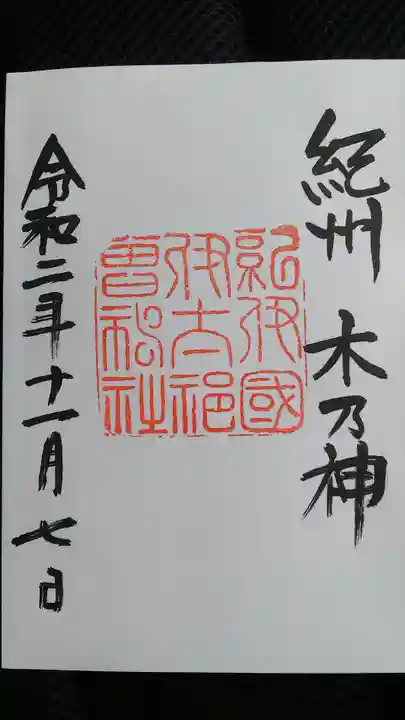 紀州 木乃神
紀伊國
伊太祁
曽神社
令和二年十一月七日